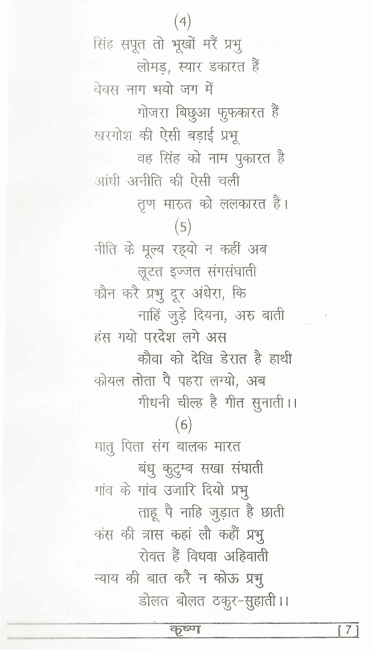 (4)
सिंह सपूत तो भूखों मरैं प्रभु
लोमड़, स्यार डकारत हैं
बेवस नाग भयो जग में
गोजरा बिछुआ फुफकारत हैं
खरगोश की ऐसी बड़ाई प्रभू
वह सिंह को नाम पुकारत है
आंधी अनीति की ऐसी चली
तृण मारुत को ललकारत है।
(5)
नीति के मूल्य रह्यो न कहीं अब
लूटत इज्जत संगसंघाती
कौन करै प्रभु दूर अंधेरा, कि
नाहिं जुड़े दियना, अरु बाती
हंस गयो परदेश लगे अस
कौवा को देखि डेरात है हाथी
कोयल तोता पै पहरा लग्यो, अब
गीधनी चील्ह है गीत सुनाती।।
(6)
मातु पिता संग बालक मारत
बंधु कुटुम्ब सखा संघाती
गांव के गांव उजारि दियो प्रभु
ताहू पै नाहि जुड़ात है छाती
कंस की त्रास कहां लौ कहौं प्रभु
रोवत हैं विधवा अहिवाती
न्याय की बात करै न कोऊ प्रभु
डोलत बोलत ठकुर-सुहाती।।
कृष्ण [7]